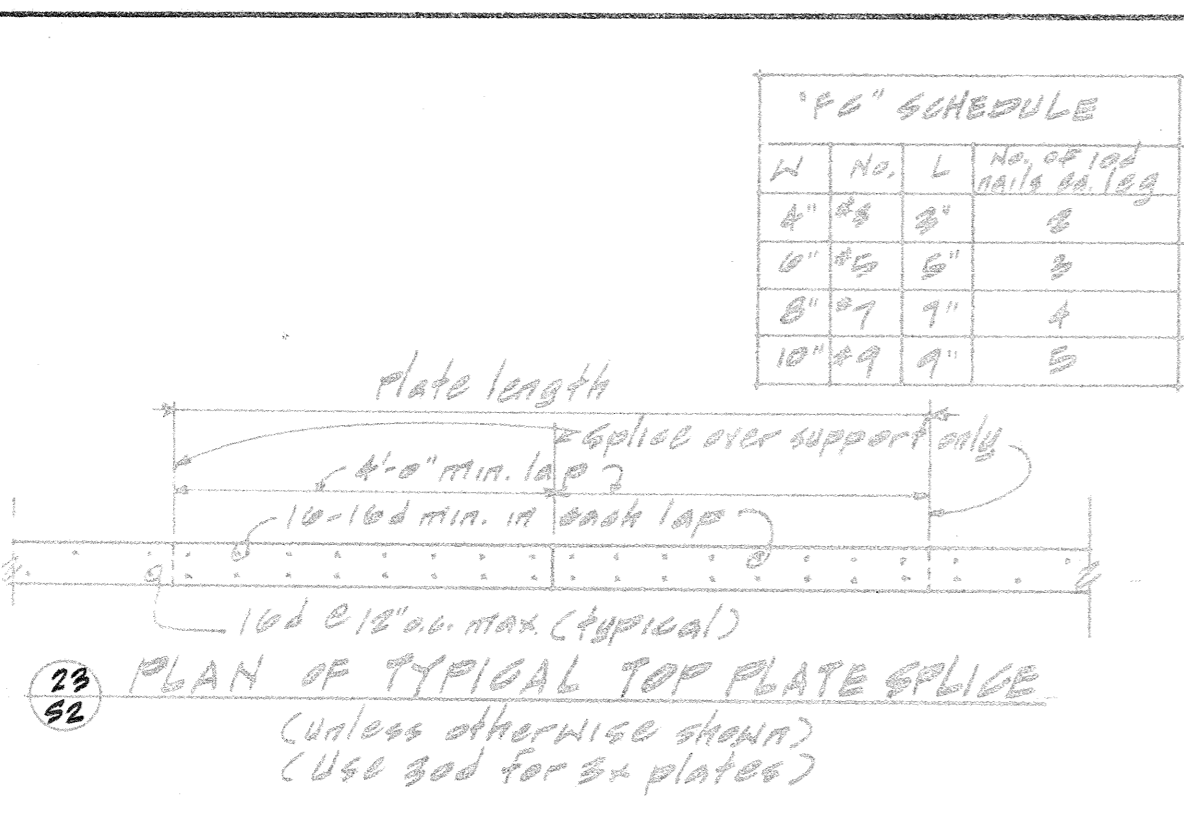 "FC" SCHEDULE
W No. L No. of 10d nails ea. leg
4" 3" 2
6" #5 5" 3
8" #7 7" 4
10" #9 9" 5
Plate length
Splice over support only.
4'-0" min. lap
16-16d min. in each lap
16d @ 12" o.c. max. (typical)
23
S2
PLAN OF TYPICAL TOP PLATE SPLICE
(Unless otherwise shown)
(Use 30d for 3x plates)